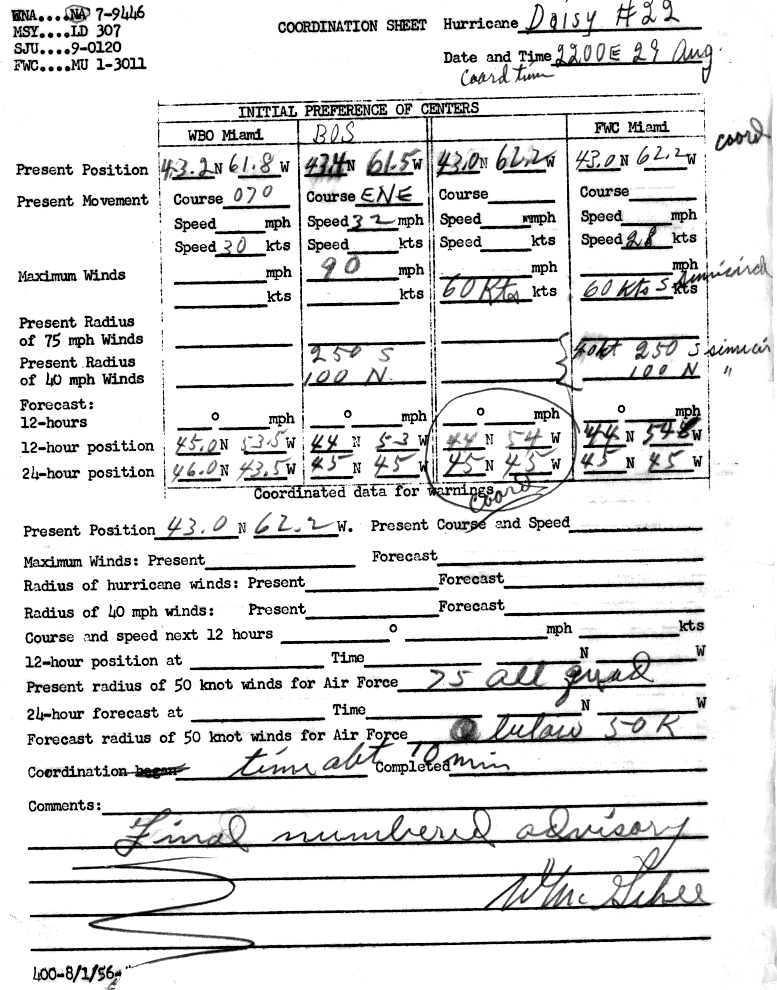 WNA....NA 7-9446
MSY....LD 307
SJU....9-0120
FWC....MU 1-3011
COORDINATION SHEET Hurricane Daisy #22
Date and Time 2200E 29 Aug.
Coord time
INITIAL PREFERENCE OF CENTERS
WBO Miami BOS FWC Miami
coord
Present Position 43.2 N 61.8 W 43.4 N 61.5 W 43.0 N 62.2 W 43.0 N 62.2 W
Present Movement Course 070 Course ENE Course Course
Speed mph Speed 32 mph Speed mph Speed mph
Speed 30 kts Speed kts Speed kts Speed 28 kts
Maximum Winds mph 90 mph mph mph
kts kts 60 Kts kts 60 kts kts
Present Radius
of 75 mph Winds 40kt 250 S
Present Radius 250 S
of 40 mph Winds 100 N 100 N "
Forecast:
12-hours o mph o mph o mph o mph
12-hour position 45.0 N 53.5 W 44 N 53 W 44 N 54 W 44 N 54 W
24-hour position 46.0 N 43.5 W 45 N 45 W 45 N 45 W 45 N 45 W
Coordinated data for warnings
Coord
Present Position 43.0 N 62.2 W. Present Course and Speed
Maximum Winds: Present Forecast
Radius of hurricane winds: Present Forecast
Radius of 40 mph winds: Present Forecast
Course and speed next 12 hours o mph kts
12-hour position at Time N W
Present radius of 50 knot winds for Air Force 75 all quad
24-hour forecast at Time N W
Forecast radius of 50 knot winds for Air Force below 50 K
Coordination began time abt Completed 10 min
Comments:
Final numbered advisory
400-8/1/56